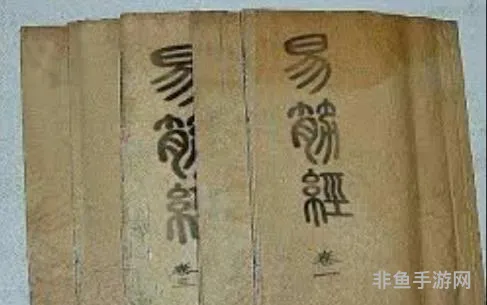 易筋經
卷一
易筋經
卷
非鱼手游网